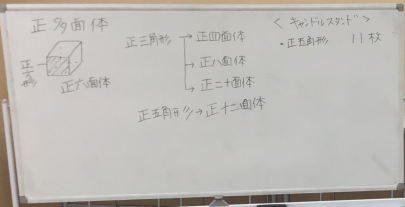 正多面体
正方形
正六面体
正三角形 → 正四面体
→ 正八面体
→ 正二十面体
正五角形 → 正十二面体
＜キャンドルスタンド＞
・正五角形 11枚